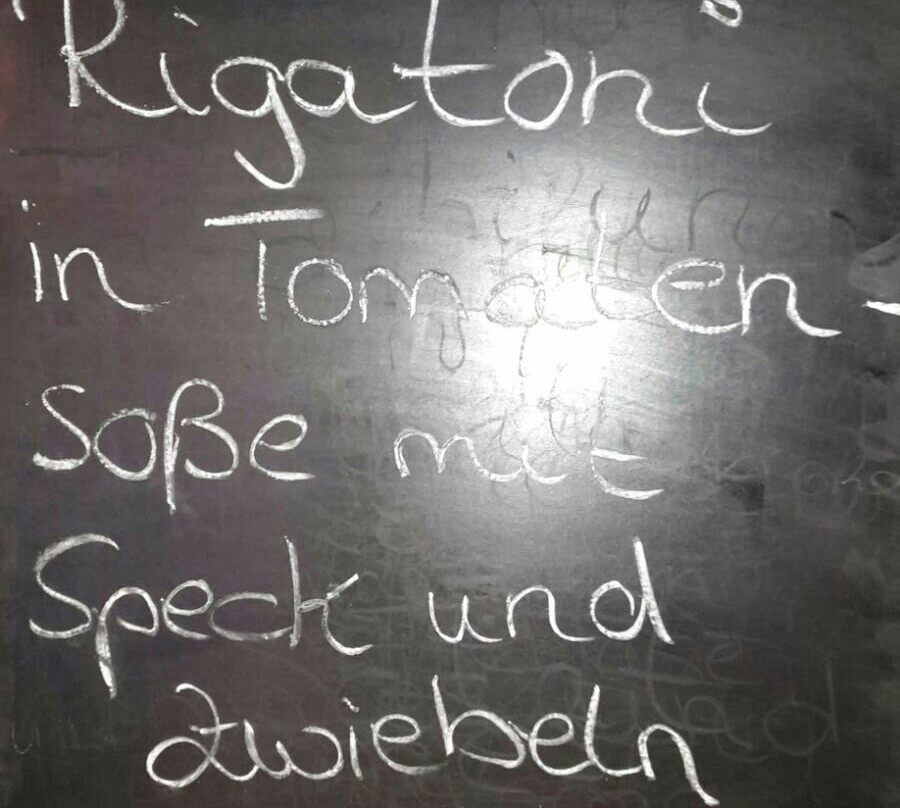 Rigatoni
in Tomaten-
Soße mit
Speck und
Zwiebeln